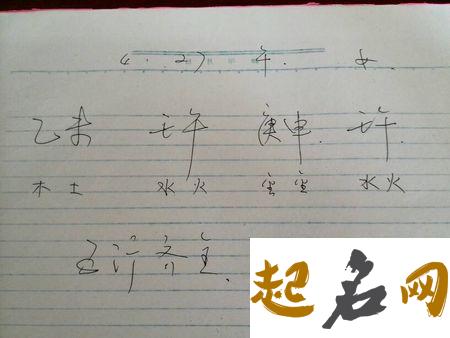 4. 27 午. 女
乙未 壬午 庚申. 壬午.
木土 水火 金金 水火
五行齐全.
起名网